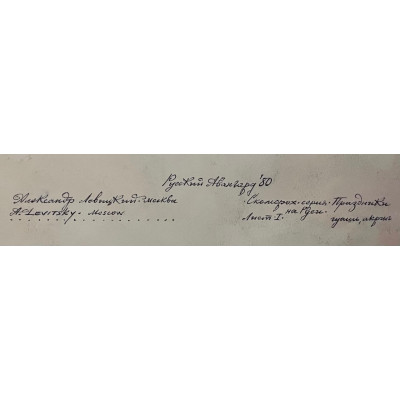 Русский Авангард '80
Александр Ловицкий. Москва
A. Lovitsky. Moscow
"Скоморох". серия. Праздники
на Руси.
Лист I. гуашь, акрил